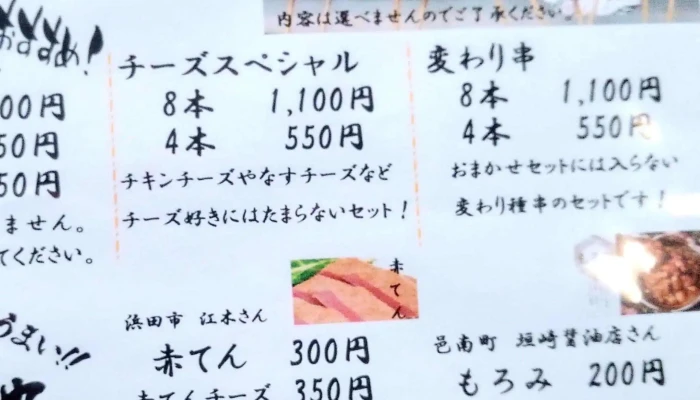 内容は選べませんのでご了承ください。
おすすめ!
00円
50円
50円
ません。
てください。
チーズスペシャル
8本 1,100円
4本 550円
チキンチーズやなすチーズなど
チーズ好きにはたまらないセット!
変わり串
8本 1,100円
4本 550円
おまかせセットには入らない
変わり種串のセットです!
うまい!!
赤てん
浜田市 江木さん
赤てん 300円
赤てんチーズ 350円
邑南町 垣崎醤油店さん
もろみ 200円